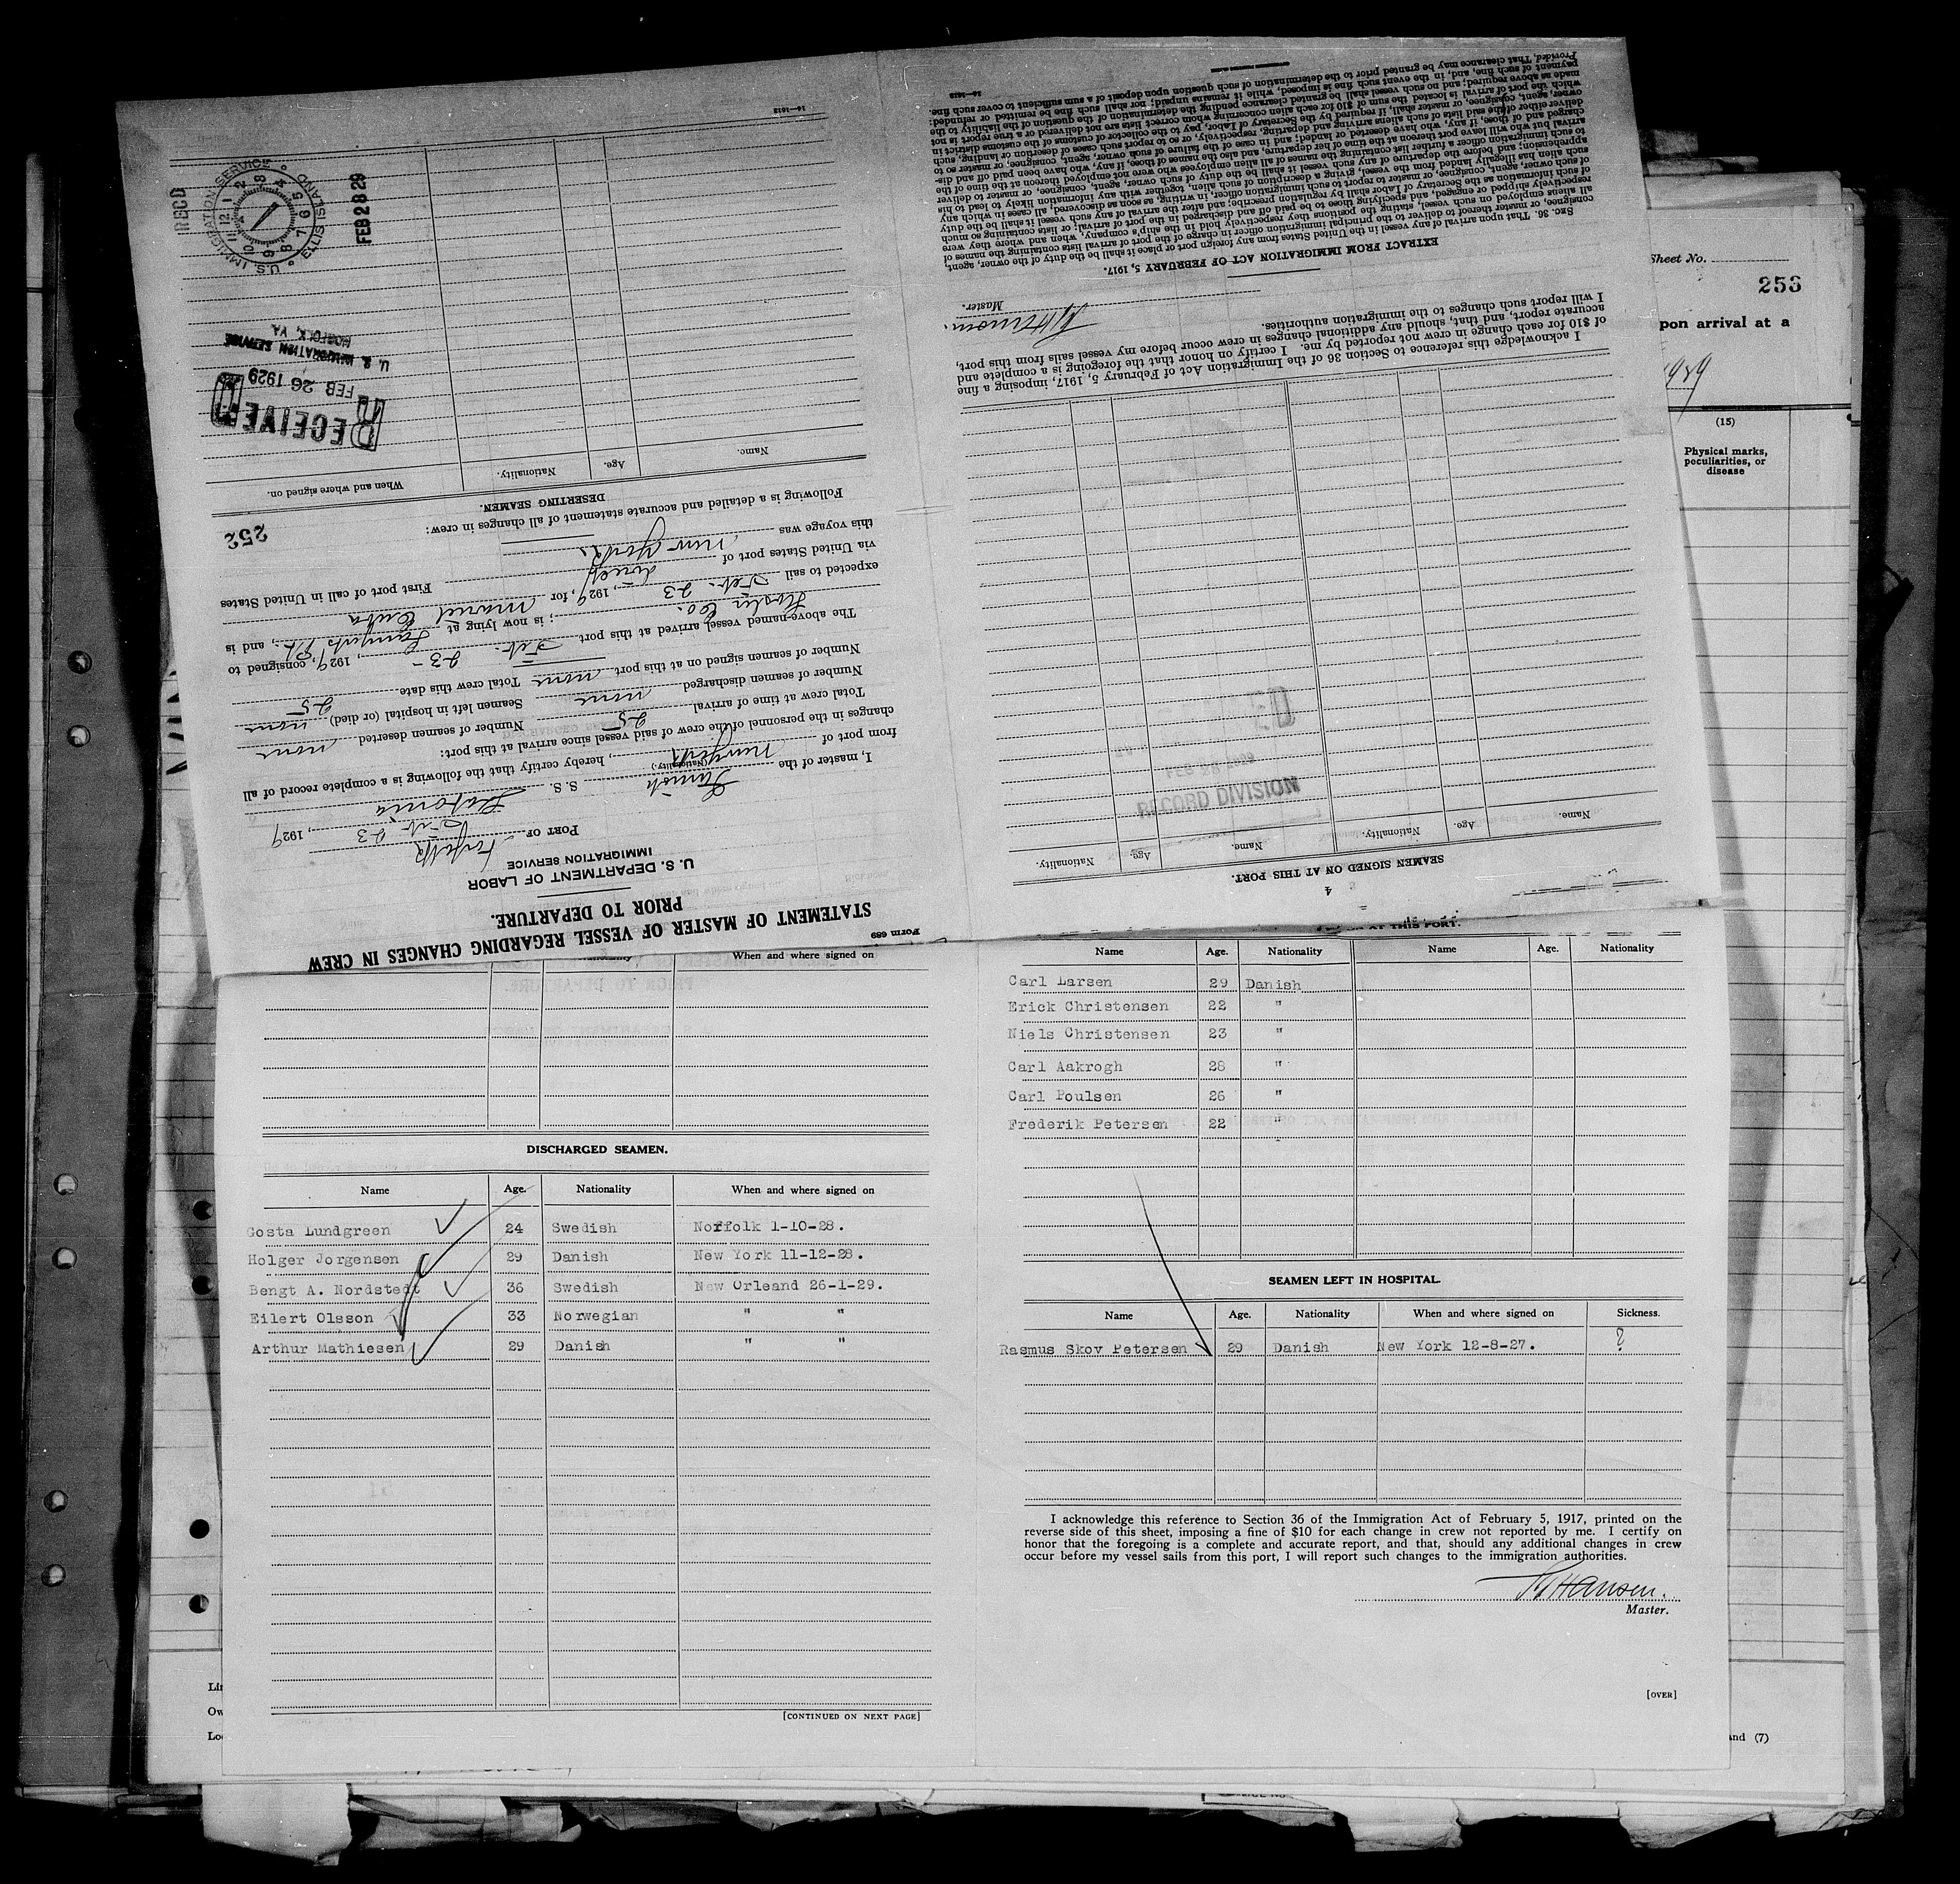 Form 689
STATEMENT OF MASTER OF VESSEL REGARDING CHANGES IN CREW
PRIOR TO DEPARTURE.
U. S. DEPARTMENT OF LABOR
IMMIGRATION SERVICE
PORT OF Norfolk
Feb. 23, 1929
I, master of the Danish S. S.
(Nationality.)
from port of New York, hereby certify that the following is a complete record of all
changes in the personnel of the crew of said vessel since arrival at this port:
Total crew at time of arrival 25 Number of seamen deserted none
Number of seamen discharged none Seamen left in hospital (or died) none
Number of seamen signed on at this port none Total crew this date 25
The above-named vessel arrived at this port Feb. 23-, 1929, consigned to
Co.; is now lying at Pt., and is
expected to sail Feb. 23, 1929, for Mariel Cuba
via United States port of direct First port of call in United States
this voyage was New York
Following is a detailed and accurate statement of all changes in crew:
252
DESERTING SEAMEN.
Name. Age. Nationality. When and where signed on.
RECEIVED
FEB 26 1929
U. S. IMMIGRATION SERVICE
NORFOLK, VA.
REC'D
U.S. IMMIGRATION SERVICE
ELLIS ISLAND
FEB 28 29
14—1613
4
SEAMEN SIGNED ON AT THIS PORT.
Name. Age. Nationality. Name. Age. Nationality.
RECORD DIVISION
I acknowledge this reference to Section 36 of the Immigration Act of February 5, 1917, imposing a fine
of $10 for each change in crew not reported by me. I certify on honor that the foregoing is a complete and
accurate report, and that, should any additional changes in crew occur before my vessel sails from this port,
I will report such changes to the immigration authorities.
Hansen.
Master.
EXTRACT FROM IMMIGRATION ACT OF FEBRUARY 5, 1917.
SEC. 36. That upon arrival of any vessel in the United States from any foreign port or place it shall be the duty of the owner, agent,
consignee, or master thereof to deliver to the principal immigration officer in charge of the port of arrival lists containing the names of
all aliens employed on such vessel, stating the positions they respectively hold in the ship's company, when and where they were
respectively shipped or engaged, and specifying those to be paid off and discharged in the port of arrival; or lists containing so much
of such information as the Secretary of Labor shall by regulation prescribe; and after the arrival of any such vessel it shall be the duty
of such owner, agent, consignee, or master to report to such immigration officer, in writing, as soon as discovered, all cases in which any
such alien has illegally landed from the vessel, giving a description of such alien, together with any information likely to lead to his
apprehension; and before the departure of any such vessel it shall be the duty of such owner, agent, consignee, or master to deliver
to such immigration officer a further list containing the names of all alien employees who were not employed thereon at the time of the
arrival but who will leave port thereon at the time of her departure, and also the names of those, if any, who have been paid off and dis-
charged and of those, if any, who have deserted or landed; and in case of the failure of such owner, agent, consignee, or master so to
deliver either of the said lists of such aliens arriving and departing, respectively, or so to report such cases of desertion or landing, such
owner, agent, consignee, or master shall, if required by the Secretary of Labor, pay to the collector of customs of the customs district in
which the port of arrival is located the sum of $10 for each alien concerning whom correct lists are not delivered or a true report is not
made as above required; and no such vessel shall be granted clearance pending the determination of the question of the liability to the
payment of such fine, and, in the event such fine is imposed, while it remains unpaid; nor shall such fine be remitted or refunded:
Provided, That clearance may be granted prior to the determination of such question upon deposit of a sum sufficient to cover such fine.
14—1613
Sheet No.
253
pon arrival at a
1929
(15)
Physical marks,
peculiarities, or
disease
When and where signed on
DISCHARGED SEAMEN.
Name Age. Nationality When and where signed on
Gosta Lundgreen 24 Swedish Norfolk 1-10-28.
Holger Jorgensen 29 Danish New York 11-12-28.
Bengt A. Nordstedt 36 Swedish New Orleand 26-1-29.
Eilert Olsson 33 Norwegian " "
Arthur Mathiesen 29 Danish " "
[CONTINUED ON NEXT PAGE]
AT THIS PORT.
Name Age. Nationality Name Age. Nationality
Carl Larsen 29 Danish
Erick Christensen 22 "
Niels Christensen 23 "
Carl Aakrogh 28 "
Carl Poulsen 26 "
Frederik Petersen 22 "
SEAMEN LEFT IN HOSPITAL.
Name Age. Nationality When and where signed on Sickness.
Rasmus Skov Petersen 29 Danish New York 12-8-27. ?
I acknowledge this reference to Section 36 of the Immigration Act of February 5, 1917, printed on the
reverse side of this sheet, imposing a fine of $10 for each change in crew not reported by me. I certify on
honor that the foregoing is a complete and accurate report, and that, should any additional changes in crew
occur before my vessel sails from this port, I will report such changes to the immigration authorities.
Hansen.
Master.
[OVER]
Li
Ow
Lo
and (7)